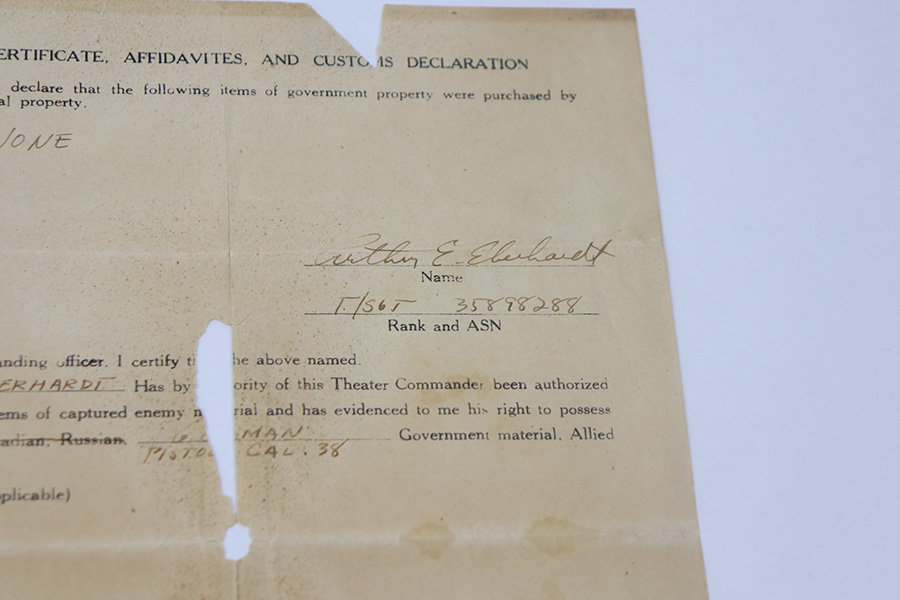 ERTIFICATE, AFFIDAVITES, AND CUSTOMS DECLARATION
declare that the following items of government property were purchased by
al property.
NONE
Arthur E. Eberhardt
Name
T/SGT 35898288
Rank and ASN
anding officer. I certify t he above named.
ERHARDT Has by ority of this Theater Commander been authorized
ems of captured enemy m rial and has evidenced to me his right to possess
adian, Russian, G MAN Government material, Allied
PISTOL CAL. 38
plicable)